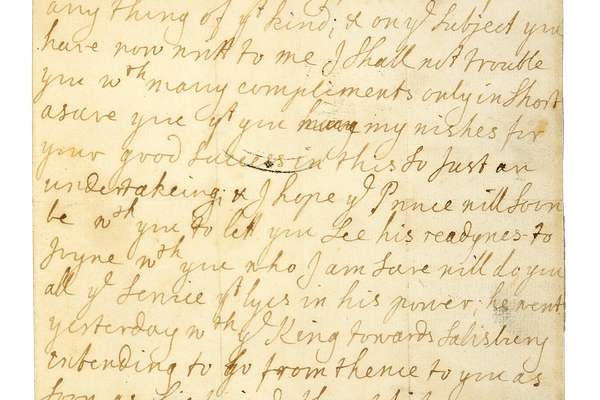 any thing of yt kind; & on ye subject you
have now writt to me I shall not trouble
you wth many compliments only in short
asure you yt you have my wishes for
your good success in this so just an
undertakeing; & I hope ye Prince will soon
be wth you to lett you see his readynes to
joyne wth you who I am sure will do you
all ye service yt lyes in his power; he went
yesterday wth ye King towards Salisbury
intending to go from thence to you as
soon as his